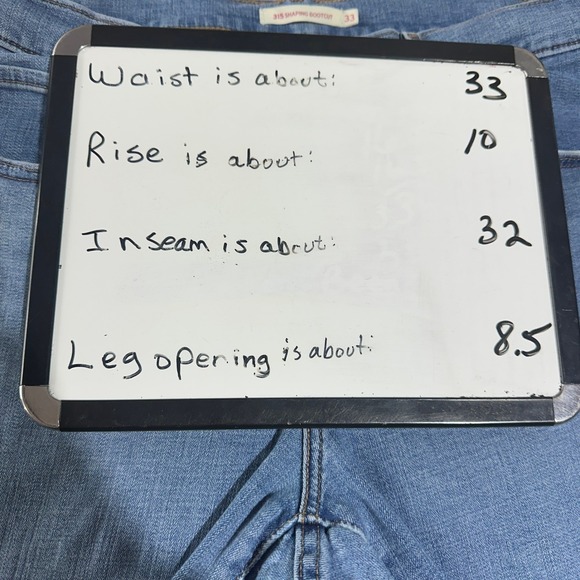 315 SHAPING BOOTCUT 33
Waist is about: 33
Rise is about: 10
Inseam is about: 32
Leg opening is about: 8.5